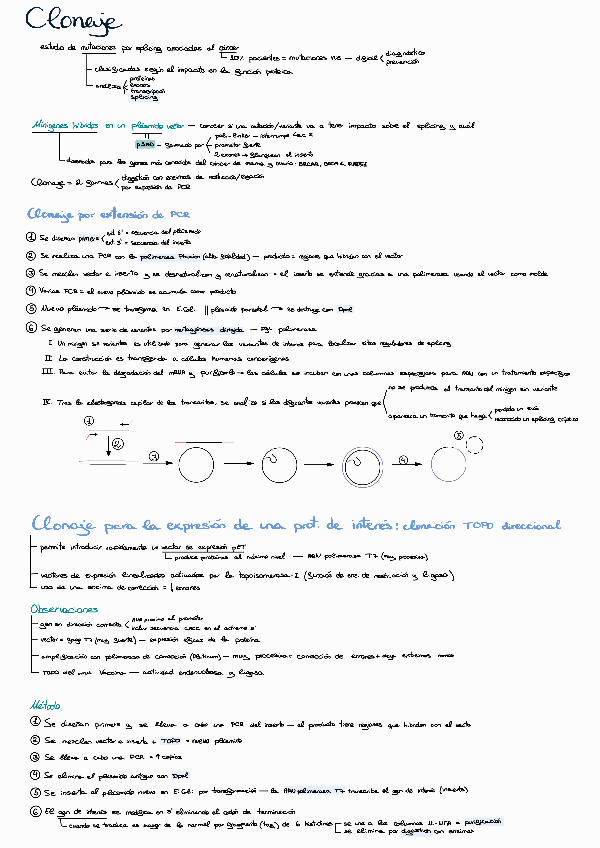 Clonaje
estudio de mutaciones por splicing asociadas al cáncer
10% pacientes = mutaciones nos — digital diagnóstico
prevención
clasificadas según el impacto en la función proteica
analiza proteínas
exones
transcripción
splicing
Minigenes híbridos en un plásmido vector — conocer si una mutación/variante va a tener impacto sobre el splicing y cuál
pSAD — formado por poli-linker — interrumpe Lac Z
promotor fuerte
2 exones → flanquean el inserto
diseñados para los genes más conocidos del cáncer de mama y ovario: BRCA1, BRCA2,
Clonaje = 2 formas digestión con enzimas de restricción/ligación
por extensión de PCR
Clonaje por extensión de PCR
① Se diseñan primers ext 5' = secuencia del plásmido
ext 3' = secuencia del inserto
② Se realiza una PCR con la polimerasa Phusion (alta fidelidad) — producto = regiones que hibridan con el vector
③ Se mezclan vector e inserto y se desnaturalizan y renaturalizan = el inserto se extiende gracias a una polimerasa usando el vector como molde
④ Varias PCR = el nuevo plásmido se acumula como producto
⑤ Nuevo plásmido → se transforma en E. coli || plásmido parental → se destruye con DpnI
⑥ Se generan una serie de variantes por mutagénesis dirigida — pfu polimerasa
I. Un minigen sin variantes es utilizado para generar las variantes de interés para localizar sitios reguladores de splicing
II. La construcción es transferida a células humanas cancerígenas
III. Para evitar la degradación del mRNA y purificarlo → las células se incuban con unas columnas específicas para ARN con un tratamiento específico
IV. Tras la electroforesis capilar de los transcritos, se analiza si las diferentes variantes provocan que
no se produzca el transcrito del minigen sin variante
aparezca un transcrito que haga perdido un exón
reconocido un splicing críptico
①
②
③
④
⑤
Clonaje para la expresión de una prot. de interés: clonación TOPO direccional
permite introducir rápidamente un vector de expresión pET
produce proteínas al máximo nivel — ARN polimerasa T7 (muy procesiva)
vectores de expresión linealizados activados por la topoisomerasa-I (función de enz. de restricción y ligasa)
uso de una enzima de corrección = ↓ errores
Observaciones
gen en dirección correcta
incluir secuencia CACC en el extremo 5'
vector = fago T7 (muy fuerte) — expresión eficaz de la proteína
amplificación con polimerasa de corrección — muy procesiva: corrección de errores + muy extremos romos
TOPO del virus Vaccinia — actividad endonucleasa y ligasa
Método
① Se diseñan primers y se lleva a cabo una PCR del inserto — el producto tiene regiones que hibridan con el vector
② Se mezclan vector e inserto + TOPO = nuevo plásmido
③ Se lleva a cabo una PCR = ↑ copias
④ Se elimina el plásmido antiguo con DpnI
⑤ Se inserta el plásmido nuevo en E. coli por transformación — la ARN polimerasa T7 transcribe el gen de interés (inserto)
⑥ El gen de interés se modifica en 3' eliminando el codón de terminación
cuando se traduzca es mayor de lo normal por fragmento (tag) de 6 histidinas
se une a las columnas Ni-NTA = purificación
se elimina por digestión con enzimas